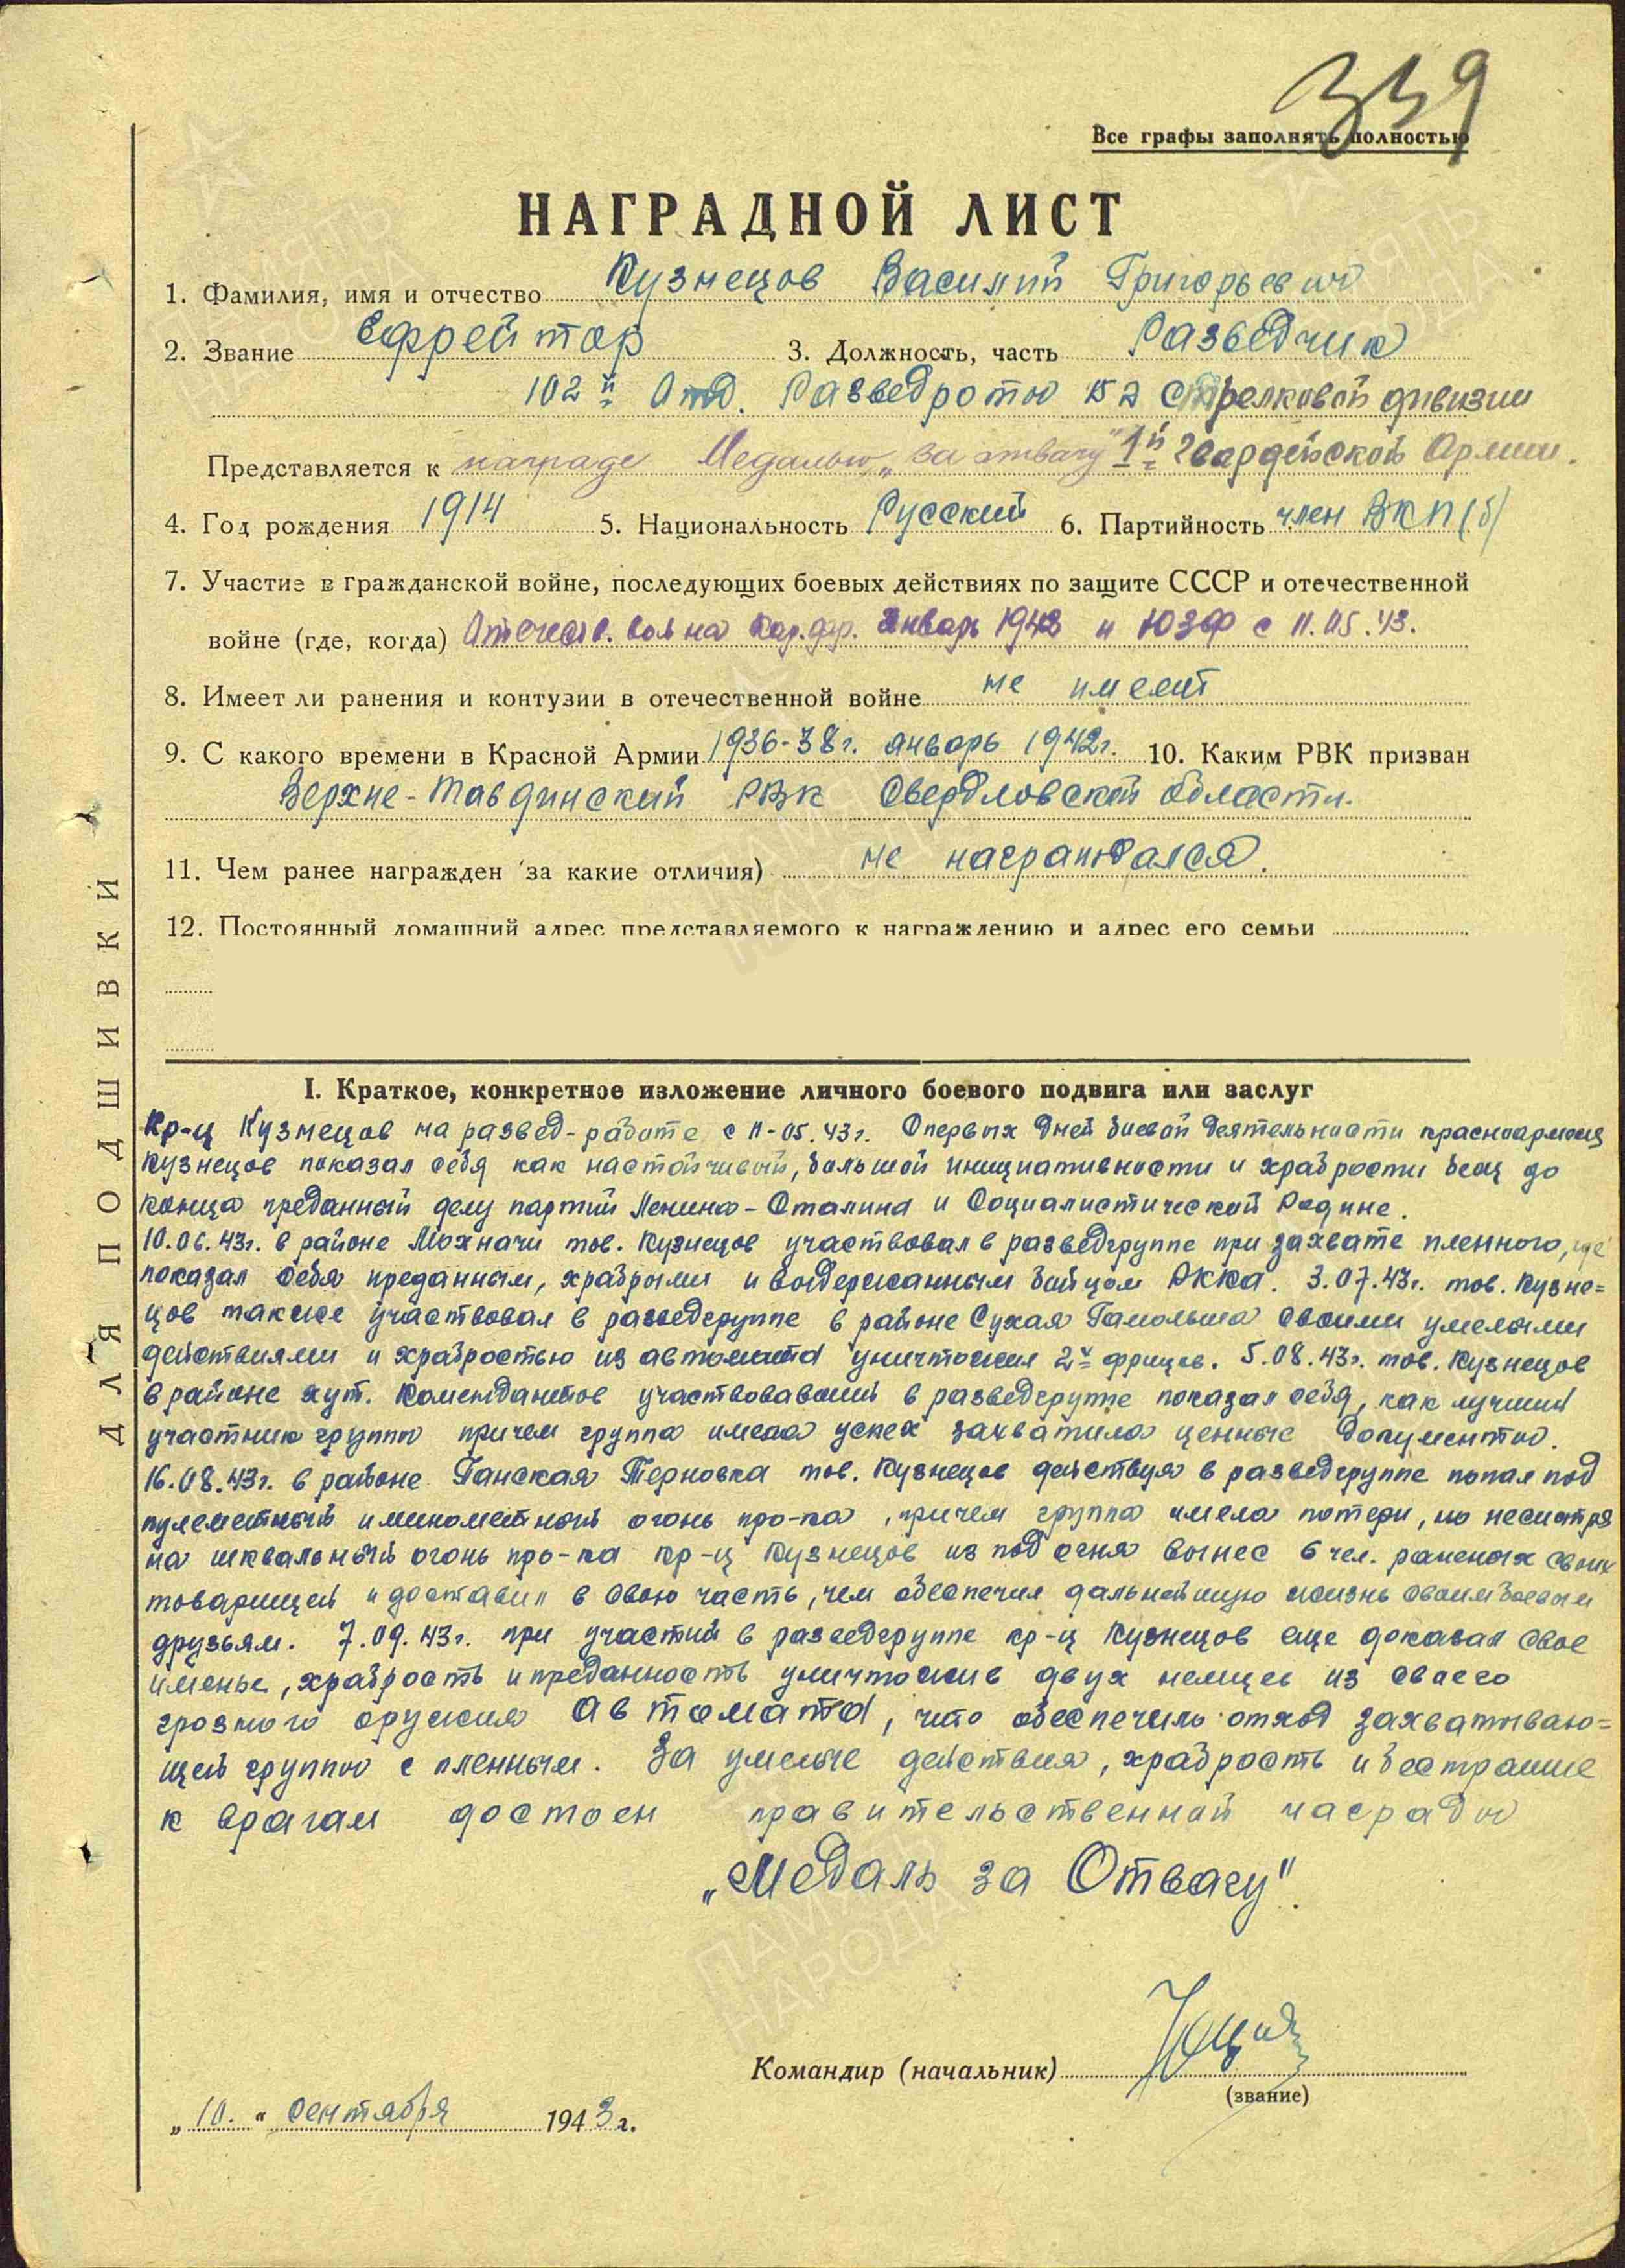 339
Все графы заполнять полностью
НАГРАДНОЙ ЛИСТ
1. Фамилия, имя и отчество Кузнецов Василий Григорьевич
2. Звание Ефрейтор 3. Должность, часть Разведчик
102й Отд. Разведроты 52 стрелковой дивизии
Представляется к награде Медалью „За отвагу" 1й Гвардейской Армии.
4. Год рождения 1914 5. Национальность Русский 6. Партийность член ВКП(б)
7. Участие в гражданской войне, последующих боевых действиях по защите СССР и отечественной
войне (где, когда) Отечеств. война Кар.фр. Январь 1942 и ЮЗФ с 11.05.43.
8. Имеет ли ранения и контузии в отечественной войне не имеет
9. С какого времени в Красной Армии 1936-38г. январь 1942г. 10. Каким РВК призван
Верхне-Тавдинский РВК Свердловской области.
11. Чем ранее награжден за какие отличия) не награждался.
12. Постоянный домашний адрес представляемого к награждению и адрес его семьи
I. Краткое, конкретное изложение личного боевого подвига или заслуг
Кр-ц Кузнецов на развед-работе с 11-05.43г. С первых дней боевой деятельности красноармеец
Кузнецов показал себя как настойчивый, большой инициативности и храбрости боец до
конца преданный делу партии Ленина-Сталина и Социалистической Родине.
10.06.43г. в районе Мохначи тов. Кузнецов участвовал в разведгруппе при захвате пленного, где
показал себя преданным, храбрым и выдержанным бойцом РККА. 3.07.43г. тов. Кузне=
цов также участвовал в разведгруппе в районе Сухая Гамольша своими умелыми
действиями и храбростью из автомата уничтожил 2х фрицев. 5.08.43г. тов. Кузнецов
в районе хут. Комендантов участвовавший в разведгруппе показал себя, как лучший
участник группы причем группа имела успех захватила ценные документы.
16.08.43г. в районе Ганская Терновка тов. Кузнецов действуя в разведгруппе попал под
пулеметный и минометный огонь про-ка, причем группа имела потери, но несмотря
на шквальный огонь про-ка кр-ц Кузнецов из под огня вынес 6 чел. раненых своих
товарищей и доставил в свою часть, чем обеспечил дальнейшую жизнь своим боевым
друзьям. 7.09.43г. при участии в разведгруппе кр-ц Кузнецов еще доказал свое
уменье, храбрость и преданность уничтожив двух немцев из своего
грозного оружия Автомата, что обеспечило отход захватываю=
щей группы с пленным. За умелые действия, храбрость и бестрашие
к врагам достоен правительственной награды
„Медаль за Отвагу".
Командир (начальник)
(звание)
„10." сентября 1943 г.
ДЛЯ ПОДШИВКИ
ПАМЯТЬ НАРОДА